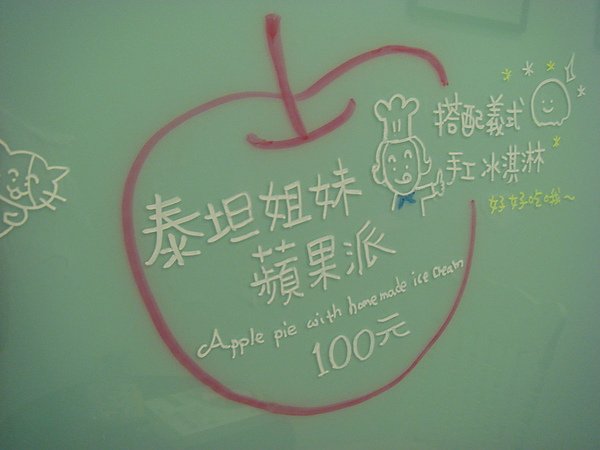 泰坦姐妹
蘋果派
Apple pie with homemade ice cream
100元
搭配義式
手工冰淇淋
好好吃哦~